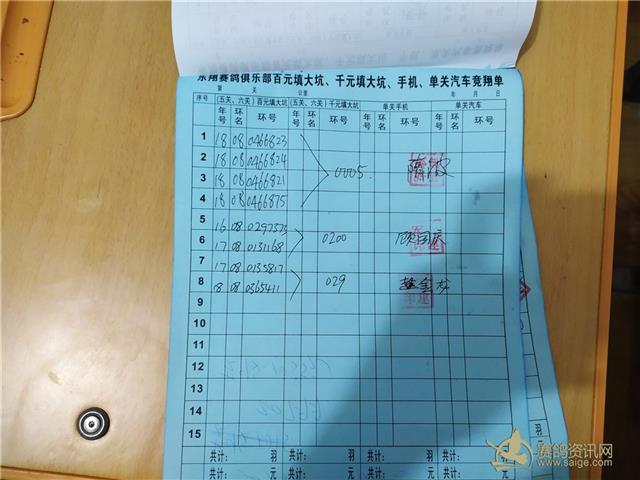 东翔赛鸽俱乐部百元填大坑、千元填大坑、手机、单关汽车竞翔单
第 关 公里 年 月 日
序号 (五关、六关)百元填大坑 (五关、六关)千元填大坑 单关手机 单关汽车
年号 环名 环号 年号 环名 环号 年号 环名 环号 年号 环名 环号
1 18 08 0466823
2 18 08 0466824
3 18 08 0466821 0005.
4 18 08 0466875
5 16 08 0297373
6 17 08 0131168 0200
7 17 08 0135817
8 18 08 0365411 029
9
10
11
12
13
14
15
共计: 羽 共计: 羽 共计: 羽 共计: 羽
共计: 元 共计: 元 共计: 元 共计: 元
羽
元
赛鸽资讯网
www.saige.com